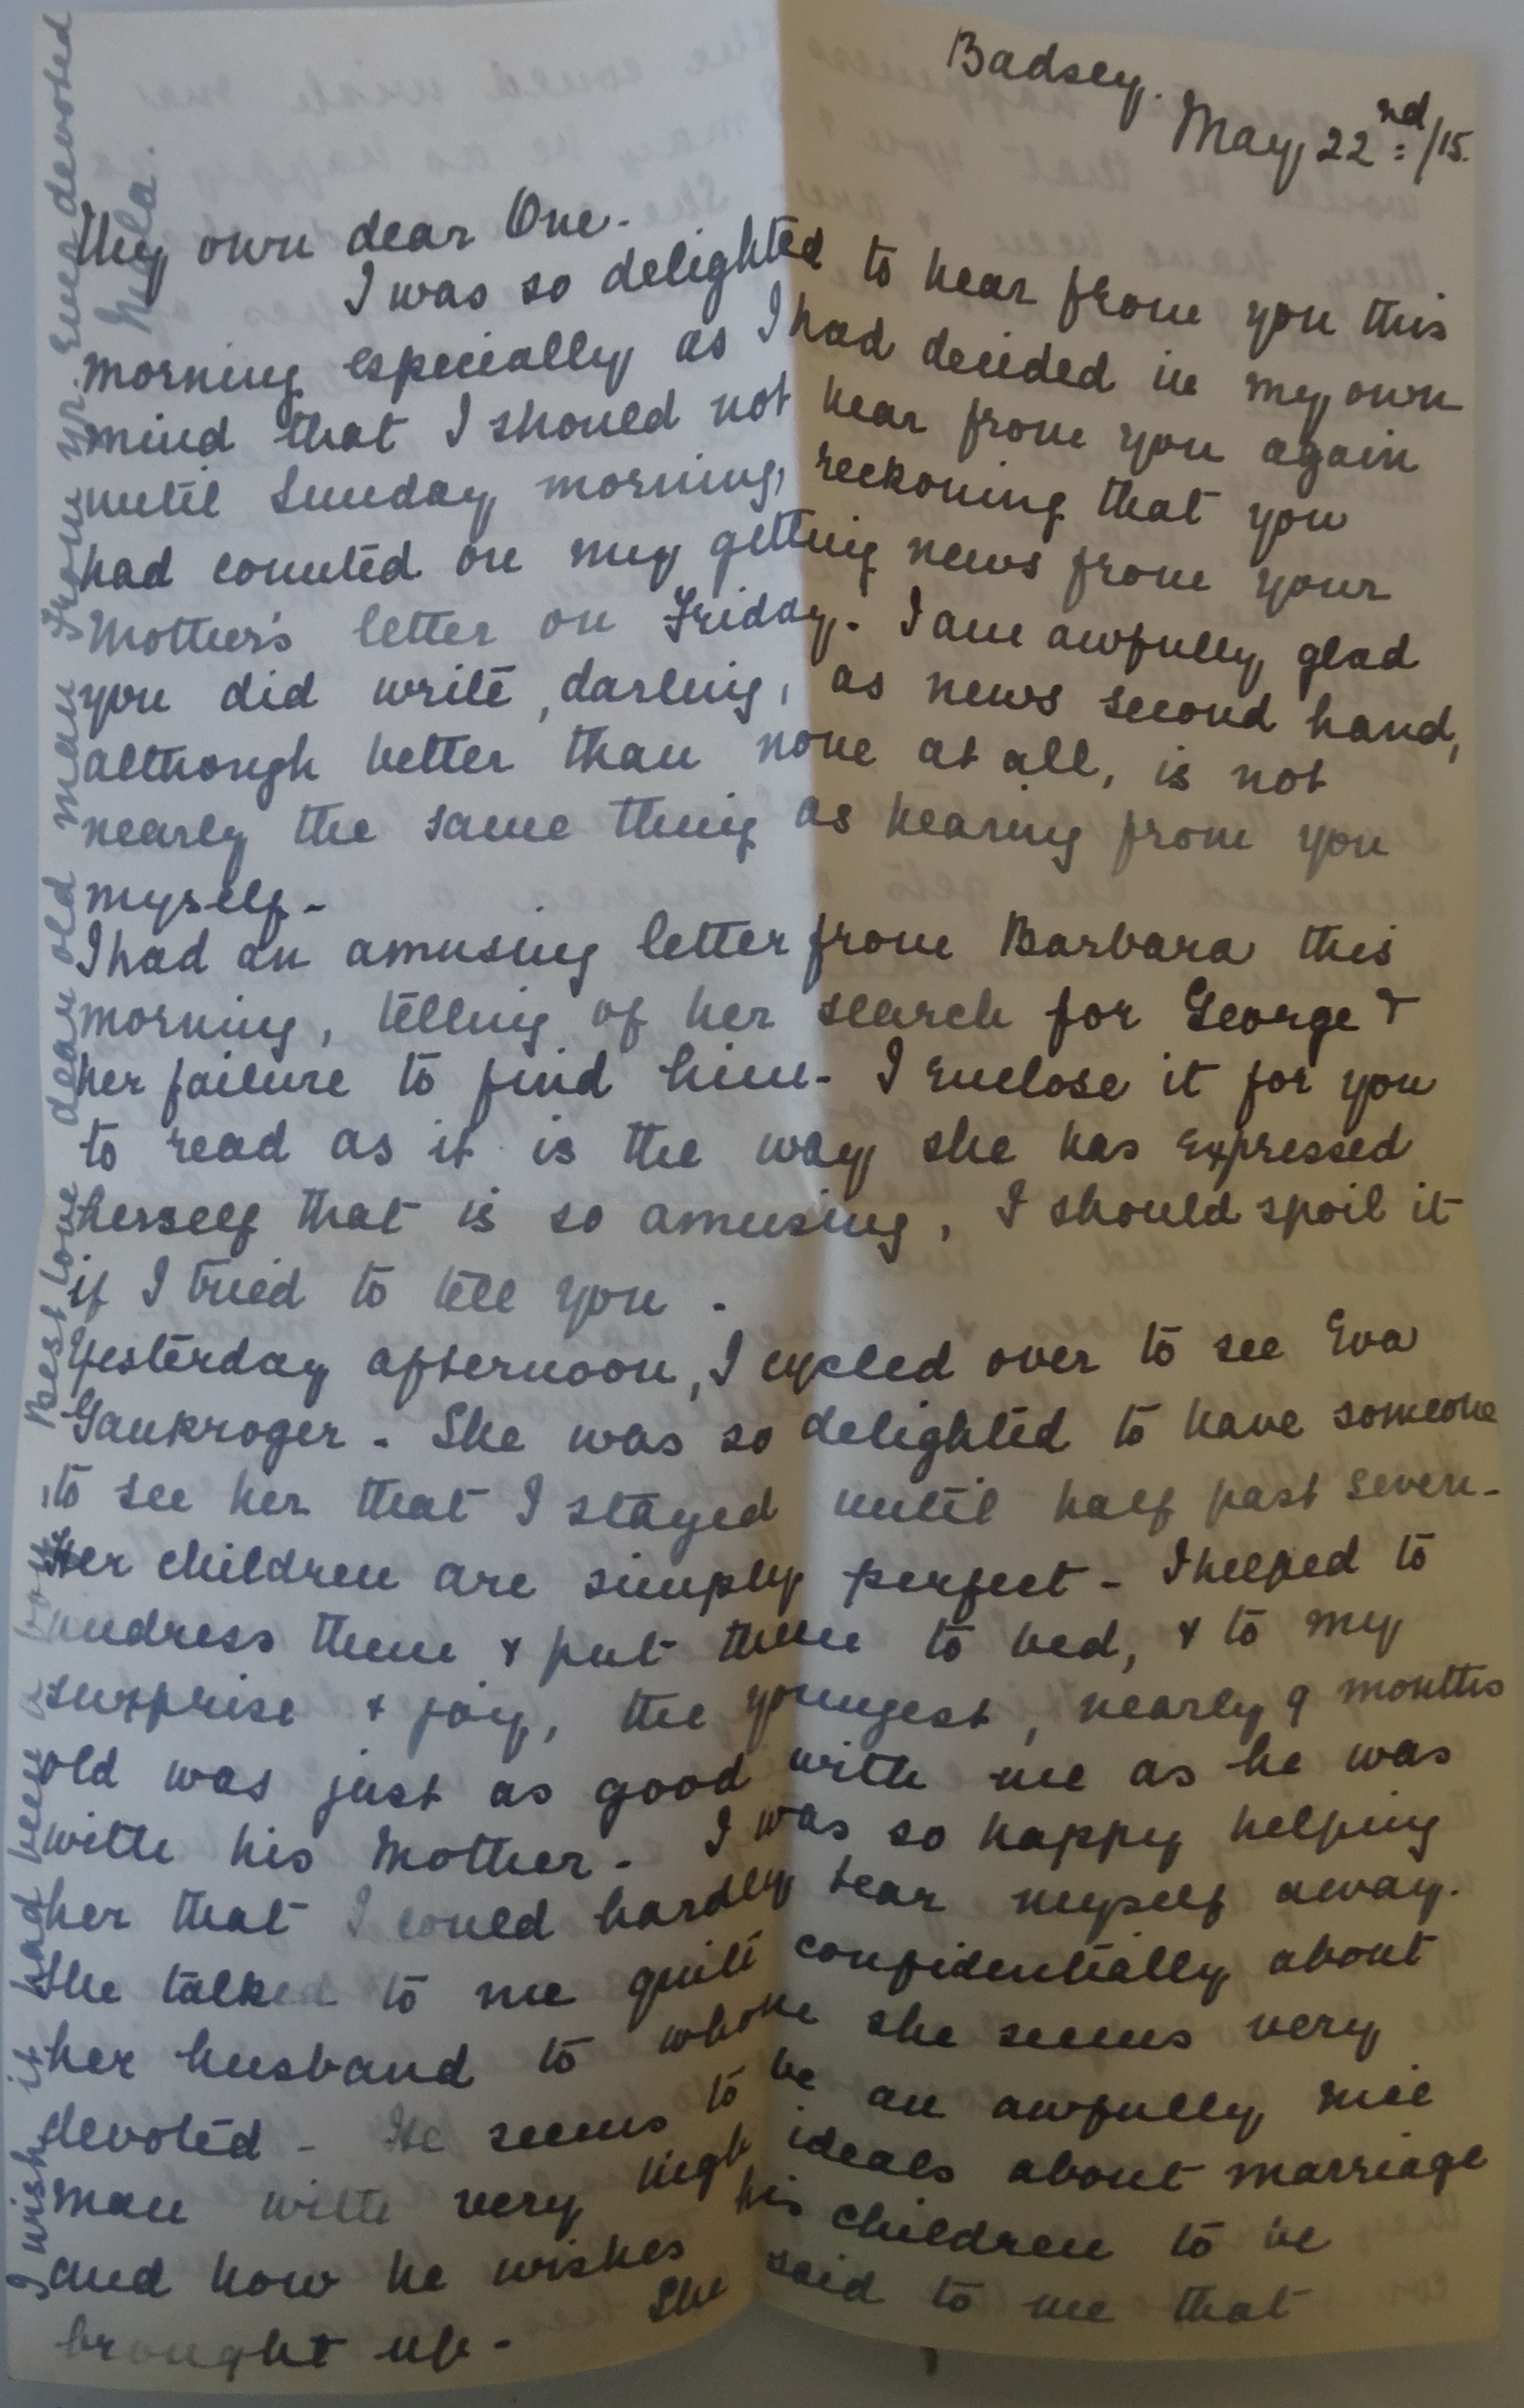 Badsey.
May 22nd/15.
My own dear One.
I was so delighted to hear from you this
morning especially as I had decided in my own
mind that I should not hear from you again
until Sunday morning, reckoning that you
had counted on my getting news from your
Mother's letter on Friday. I am awfully glad
you did write, darling, as news second hand,
although better than none at all, is not
nearly the same thing as hearing from you
myself -
I had an amusing letter from Barbara this
morning, telling of her search for George &
her failure to find him - I enclose it for you
to read as it is the way she has expressed
herself that is so amusing, I should spoil it
if I tried to tell you.
Yesterday afternoon, I cycled over to see Eva
Gaukroger - She was so delighted to have someone
to see her that I stayed until half past seven -
Her children are simply perfect - I helped to
undress them & put them to bed, & to my
surprise & joy, the youngest, nearly 9 months
old was just as good with me as he was
with his Mother - I was so happy helping
her that I could hardly tear myself away.
She talked to me quite confidentially about
her husband to whom she seems very
devoted - He seems to be an awfully nice
man with very high ideals about marriage
and how he wishes his children to be
brought up - She said to me that
I wish it had been a boy. Best love dear old man From yr. Ever devoted
Mela.